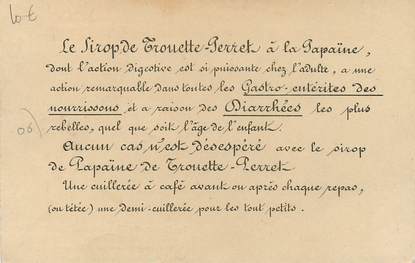 10 €
Le Sirop de Trouette-Perret à la Papaïne,
dont l'action digestive est si puissante chez l'adulte, a une
action remarquable dans toutes les Gastro-entérites des
nourrissons et a raison des Diarrhées les plus
rebelles, quel que soit l'âge de l'enfant.
Aucun cas n'est désespéré avec le sirop
de Papaïne de Trouette-Perret
Une cuillerée à café avant ou après chaque repas,
(ou tétée) une demi-cuillerée pour les tout petits.